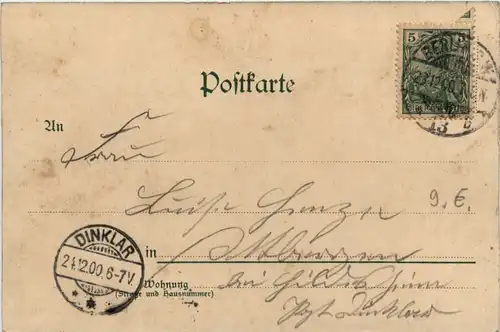 5 5
BERLIN
23.12.00
13 B
Postkarte
An
Frau
Luise
9. E.
DINKLAR
21.12.00.6-7V.
in Ottbergen
Wohnung
(Straße und Hausnummer)
bei Hildesheim
Pst. Dinklar